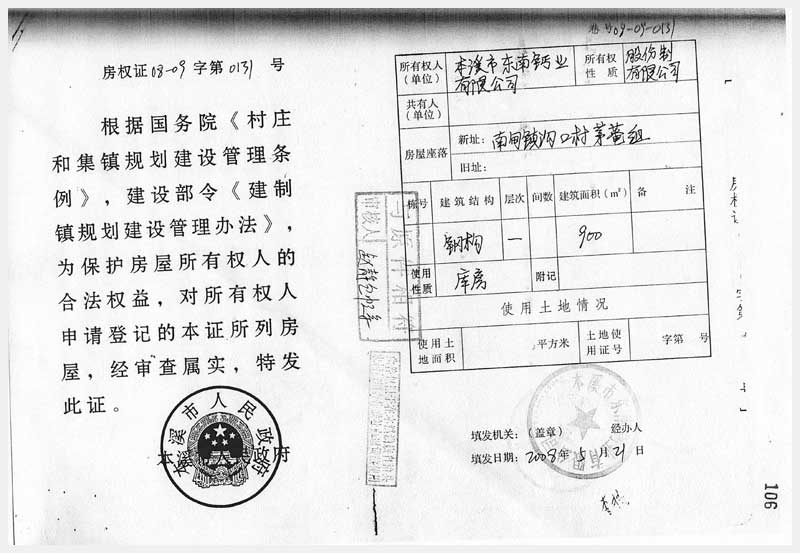 房权证08-09字第0131号
根据国务院《村庄
和集镇规划建设管理条
例》，建设部令《建制
镇规划建设管理办法》，
为保护房屋所有权人的
合法权益，对所有权人
申请登记的本证所列房
屋，经审查属实，特发
此证。
本溪市人民政府
本溪市人民政府
08-09-0131
所有权人（单位） 本溪市东南钙业有限公司 所有权性质 股份制有限公司
共有人（单位）
房屋座落 新址：南甸镇沟口村茅黄组
旧址：
栋号 建筑结构 层次 间数 建筑面积（m²） 备注
钢构 一 900
使用性质 库房 附记
使用土地情况
使用土地面积 平方米 土地使用证号 字第 号
审核人
填发机关：（盖章） 经办人
填发日期：2008年5月21日
106